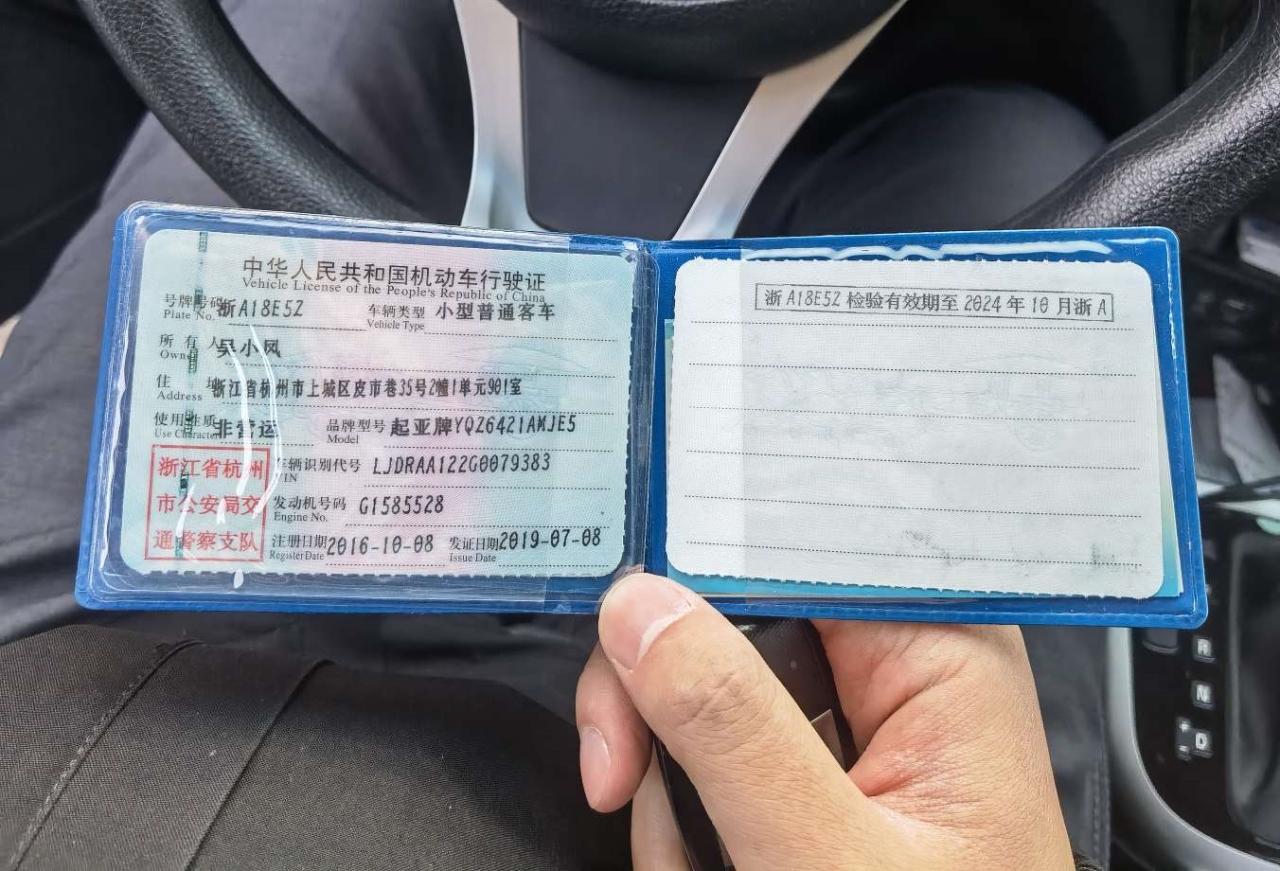 中华人民共和国机动车行驶证
Vehicle License of the People's Republic of China
号牌号码 浙A18E5Z 车辆类型 小型普通客车
Plate No. Vehicle Type
所有人 吴小凤
Owner
住址 浙江省杭州市上城区皮市巷35号2幢1单元901室
Address
使用性质 非营运 品牌型号 起亚牌YQZ6421AMJE5
Use Character Model
浙江省杭州
市公安局交
通警察支队
车辆识别代号 LJDRAA122G0079383
VIN
发动机号码 G1585528
Engine No.
注册日期 2016-10-08 发证日期 2019-07-08
Register Date Issue Date
浙A18E5Z 检验有效期至 2024年10月浙A
R
N
D